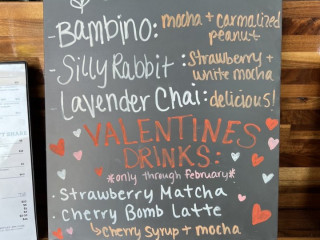 - Bambino: mocha + carmalized
peanut
- Silly Rabbit: Strawberry +
white mocha
- Lavender Chai: delicious!
VALENTINES
DRINKS:
*only through February*
· Strawberry Matcha
· Cherry Bomb Latte
↳ Cherry Syrup + mocha